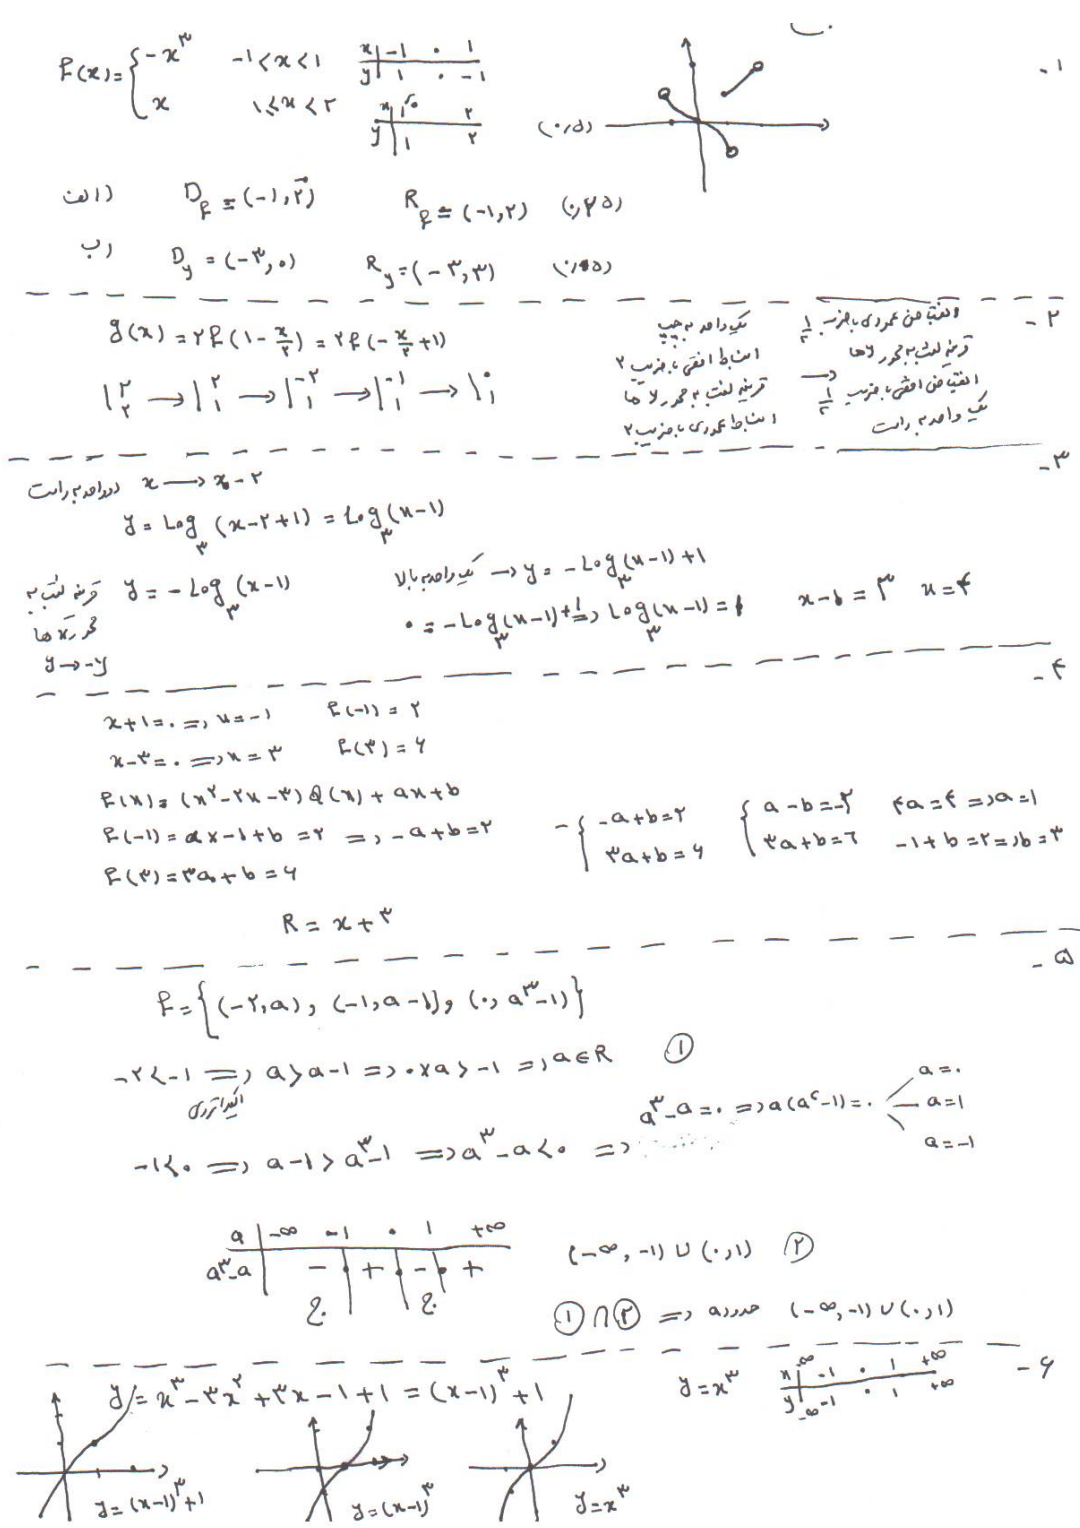 ۱-
f(x)= { -x^۳   -۱<x<۱
x   ۱≤x<۲
x | -۱   ۰   ۱
y | ۱   ۰   -۱
x | ۱   ۲
y | ۱   ۲
(۰,۵)
الف)   D_f = (-۱,۲)   R_f = (-۱,۲)   (۰,۲۵)
ب)   D_y = (-۳,۰)   R_y = (-۳,۳)
۲-
g(x) = ۲f(۱-x/۲) = ۲f(-x/۲+۱)
|۲ ۲ → |۲ ۱ → |-۲ ۱ → |-۱ ۱ → |۰ ۱
یک واحد به چپ
انبساط افقی با ضریب ۲
قرینه نسبت به محور y ها
انبساط عمودی با ضریب ۲
→
انقباض عمودی با ضریب ۱/۲
قرینه نسبت به محور y ها
انقباض افقی با ضریب ۱/۲
یک واحد به راست
۳-
دو واحد به راست   x → x-۲
y = Log_۳ (x-۲+۱) = Log_۳ (x-۱)
قرینه نسبت به   y = -Log_۳ (x-۱)   یک واحد به بالا → y = -Log_۳ (x-۱)+۱
محور x ها   ۰ = -Log_۳ (x-۱)+۱ ⇒ Log_۳ (x-۱) = ۱   x-۱ = ۳   x=۴
y → -y
۴-
x+۱=۰ ⇒ x=-۱   f(-۱) = ۲
x-۳=۰ ⇒ x=۳   f(۳) = ۶
f(x) = (x^۲-۲x-۳) Q(x) + ax+b
f(-۱) = a×-۱+b = ۲ ⇒ -a+b=۲   -{ -a+b=۲   { a-b=-۲   ۴a=۴ ⇒ a=۱
f(۳) = ۳a+b = ۶   ۳a+b=۶   ۳a+b=۶   -۱+b=۲ ⇒ b=۳
R = x+۳
۵-
f = {(-۲,a), (-۱,a-۱), (۰,a^۳-۱)}
-۲<-۱ ⇒ a>a-۱ ⇒ ۰×a>-۱ ⇒ a∈R   ①
اکیدا نزولی
a^۳-a=۰ ⇒ a(a^۲-۱)=۰   a=۰   a=۱   a=-۱
-۱<۰ ⇒ a-۱>a^۳-۱ ⇒ a^۳-a<۰ ⇒
a | -∞   -۱   ۰   ۱   +∞
a^۳-a | -   +   -   +
ج   ج
(-∞,-۱)∪(۰,۱)   ②
①∩② ⇒ حدود a   (-∞,-۱)∪(۰,۱)
۶-
y = x^۳-۳x^۲+۳x-۱+۱ = (x-۱)^۳+۱   y=x^۳
x | -∞   -۱   ۰   ۱   +∞
y | -∞   -۱   ۰   ۱   +∞
y=(x-۱)^۳+۱   y=(x-۱)^۳   y=x^۳